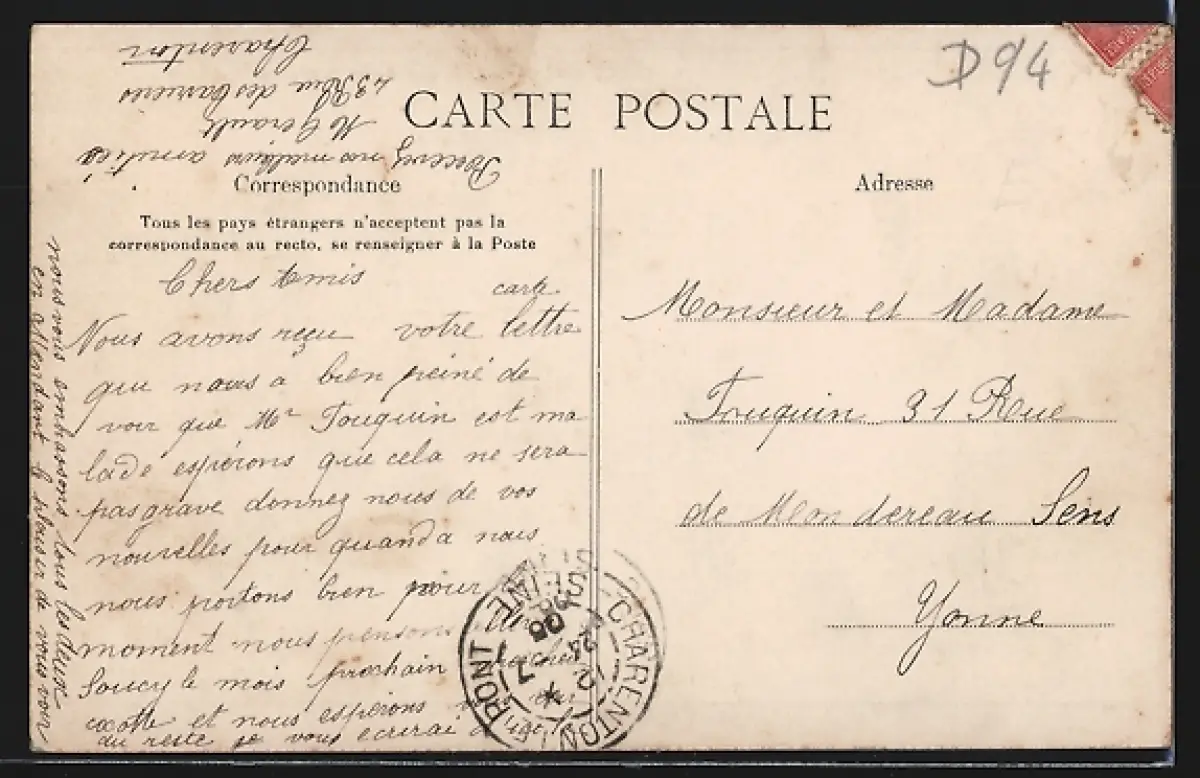 D94
CARTE POSTALE
Correspondance
Tous les pays étrangers n'acceptent pas la
correspondance au recto, se renseigner à la Poste
Chers Amis
carte
Nous avons reçu votre lettre
que nous a bien peiné de
voir que Mr Fouquin est ma
lade espérons que cela ne sera
pas grave donnez nous de vos
nouvelles pour quand a nous
nous portons bien pour
moment nous pensons
Soucy le mois prochain
et nous espérons
du reste je vous ecrirai
nous vous embrassons tous les deux
en attendant le plaisir de vous voir
Recevez nos meilleurs amitiés
M Gerault
43 Rue des Carrieres
Charenton
Adresse
Monsieur et Madame
Fouquin 31 Rue
de Mondereau Sens
Yonne
CHARENTON LE PONT
SEINE
12 * 7
24
08